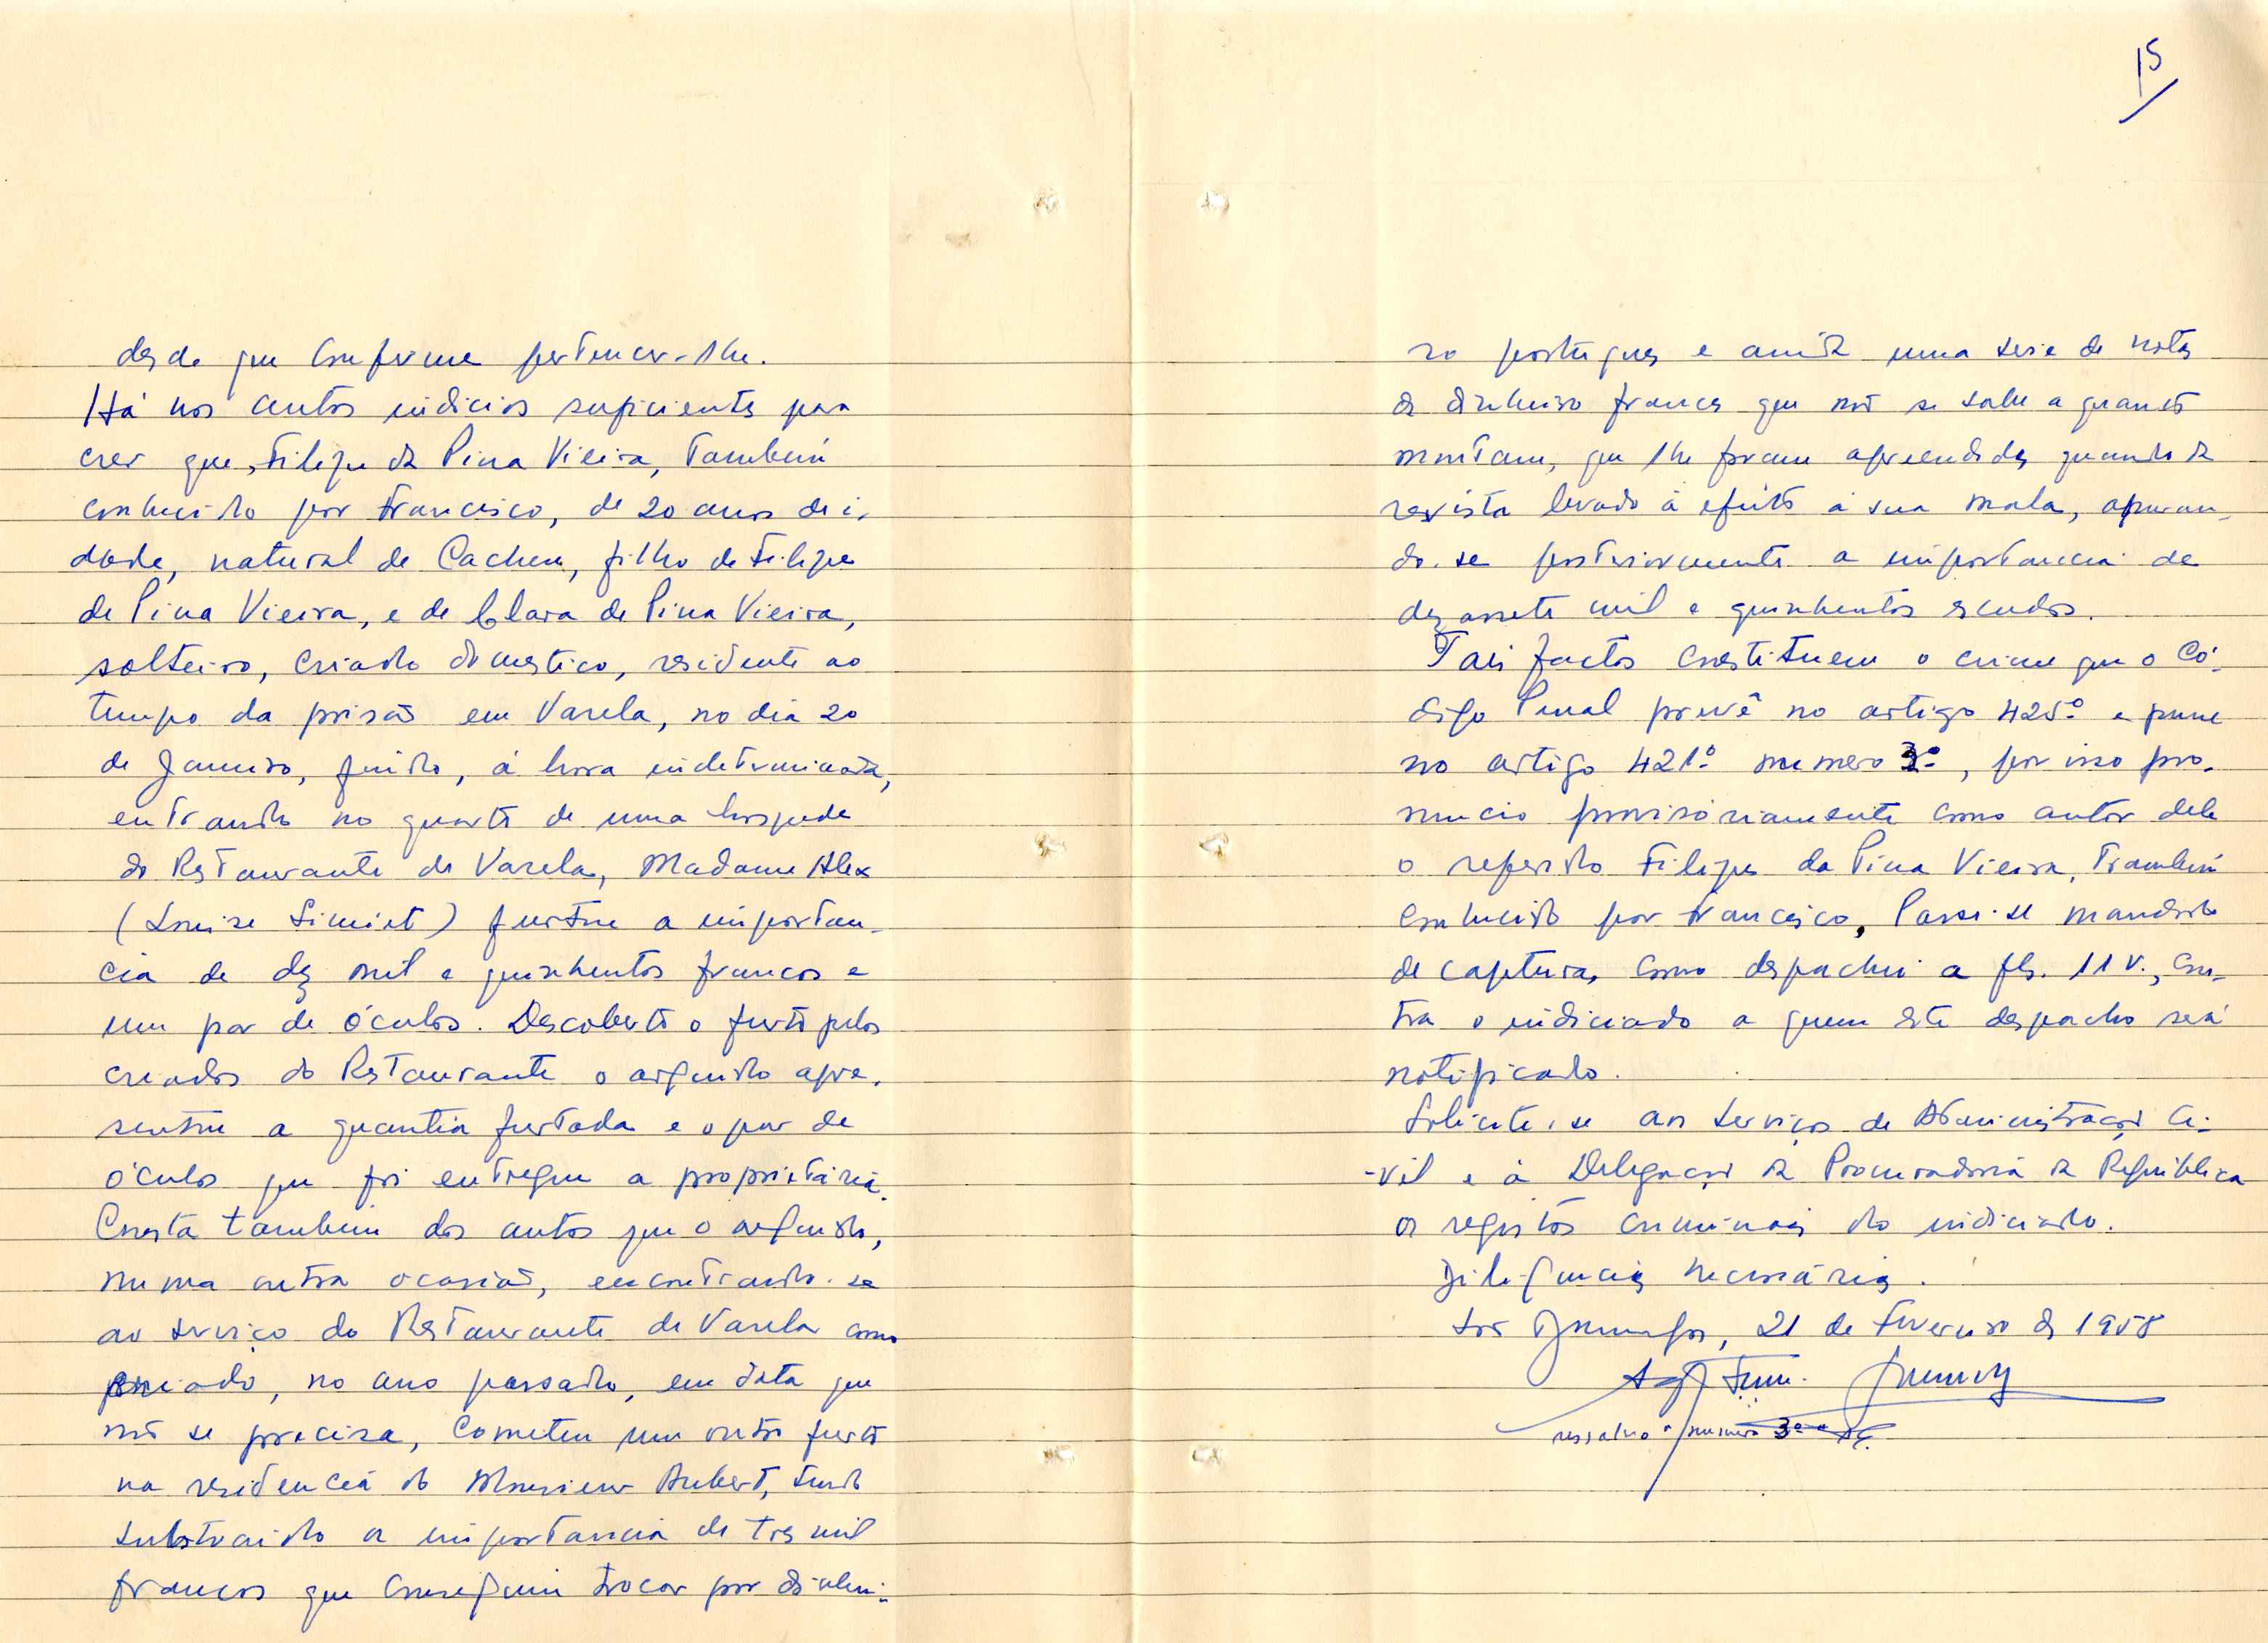 desde que confirme pertencer-lhe.
Há nos autos indicios suficientes para
crer que, Filipe da Pina Vieira, também
conhecido por Francisco, de 20 anos de i-
dade, natural de Cacheu, filho de Filipe
de Pina Vieira, e de Clara de Pina Vieira,
solteiro, criado domestico, residente ao
tempo da prisão em Varela, no dia 20
de Janeiro, findo, á hora indeterminada,
entrando no quarto de uma hospede
do Restaurante de Varela, Madame Alex
(Louise Simiet) furtou a importan-
cia de dez mil e quinhentos francos e
um par de óculos. Descoberto o furto pelos
criados do Restaurante o arguido apre-
sentou a quantia furtada e o par de
óculos que foi entregue a proprietária.
Consta também dos autos que o arguido,
numa outra ocasião, encontrando-se
ao serviço do Restaurante de Varela como
criado, no ano passado, em data que
não se precisa, cometeu um outro furto
na residencia do Monsieur Aubert, tendo
substraido a importancia de tres mil
francos que conseguiu trocar por dinhei-
15
ro português e ainda uma serie de notas
de dinheiro frances que não se sabe a quanto
montam, que lhe foram apreendidas quando da
revista levado á efeito á sua mala, apuran-
do-se posteriormente a importancia de
dezassete mil e quinhentos escudos.
Tais factos constituem o crime que o Có-
digo Penal prevê no artigo 425º e pune
no artigo 421º numero 3º, por isso pro-
nuncio provisóriamente como autor dele
o referido Filipe da Pina Vieira, também
conhecido por Francisco. Passe-se mandado
de captura, como despachei a fls. 11 v., con-
tra o indiciado a quem este despacho será
notificado.
Solicite-se aos Serviços de Administração Ci-
-vil e á Delegação da Procuradoria da República
os registos criminais do indiciado.
Diligencias necessárias.
São Domingos, 21 de Fevereiro de 1958
ressalvo o numero 3º